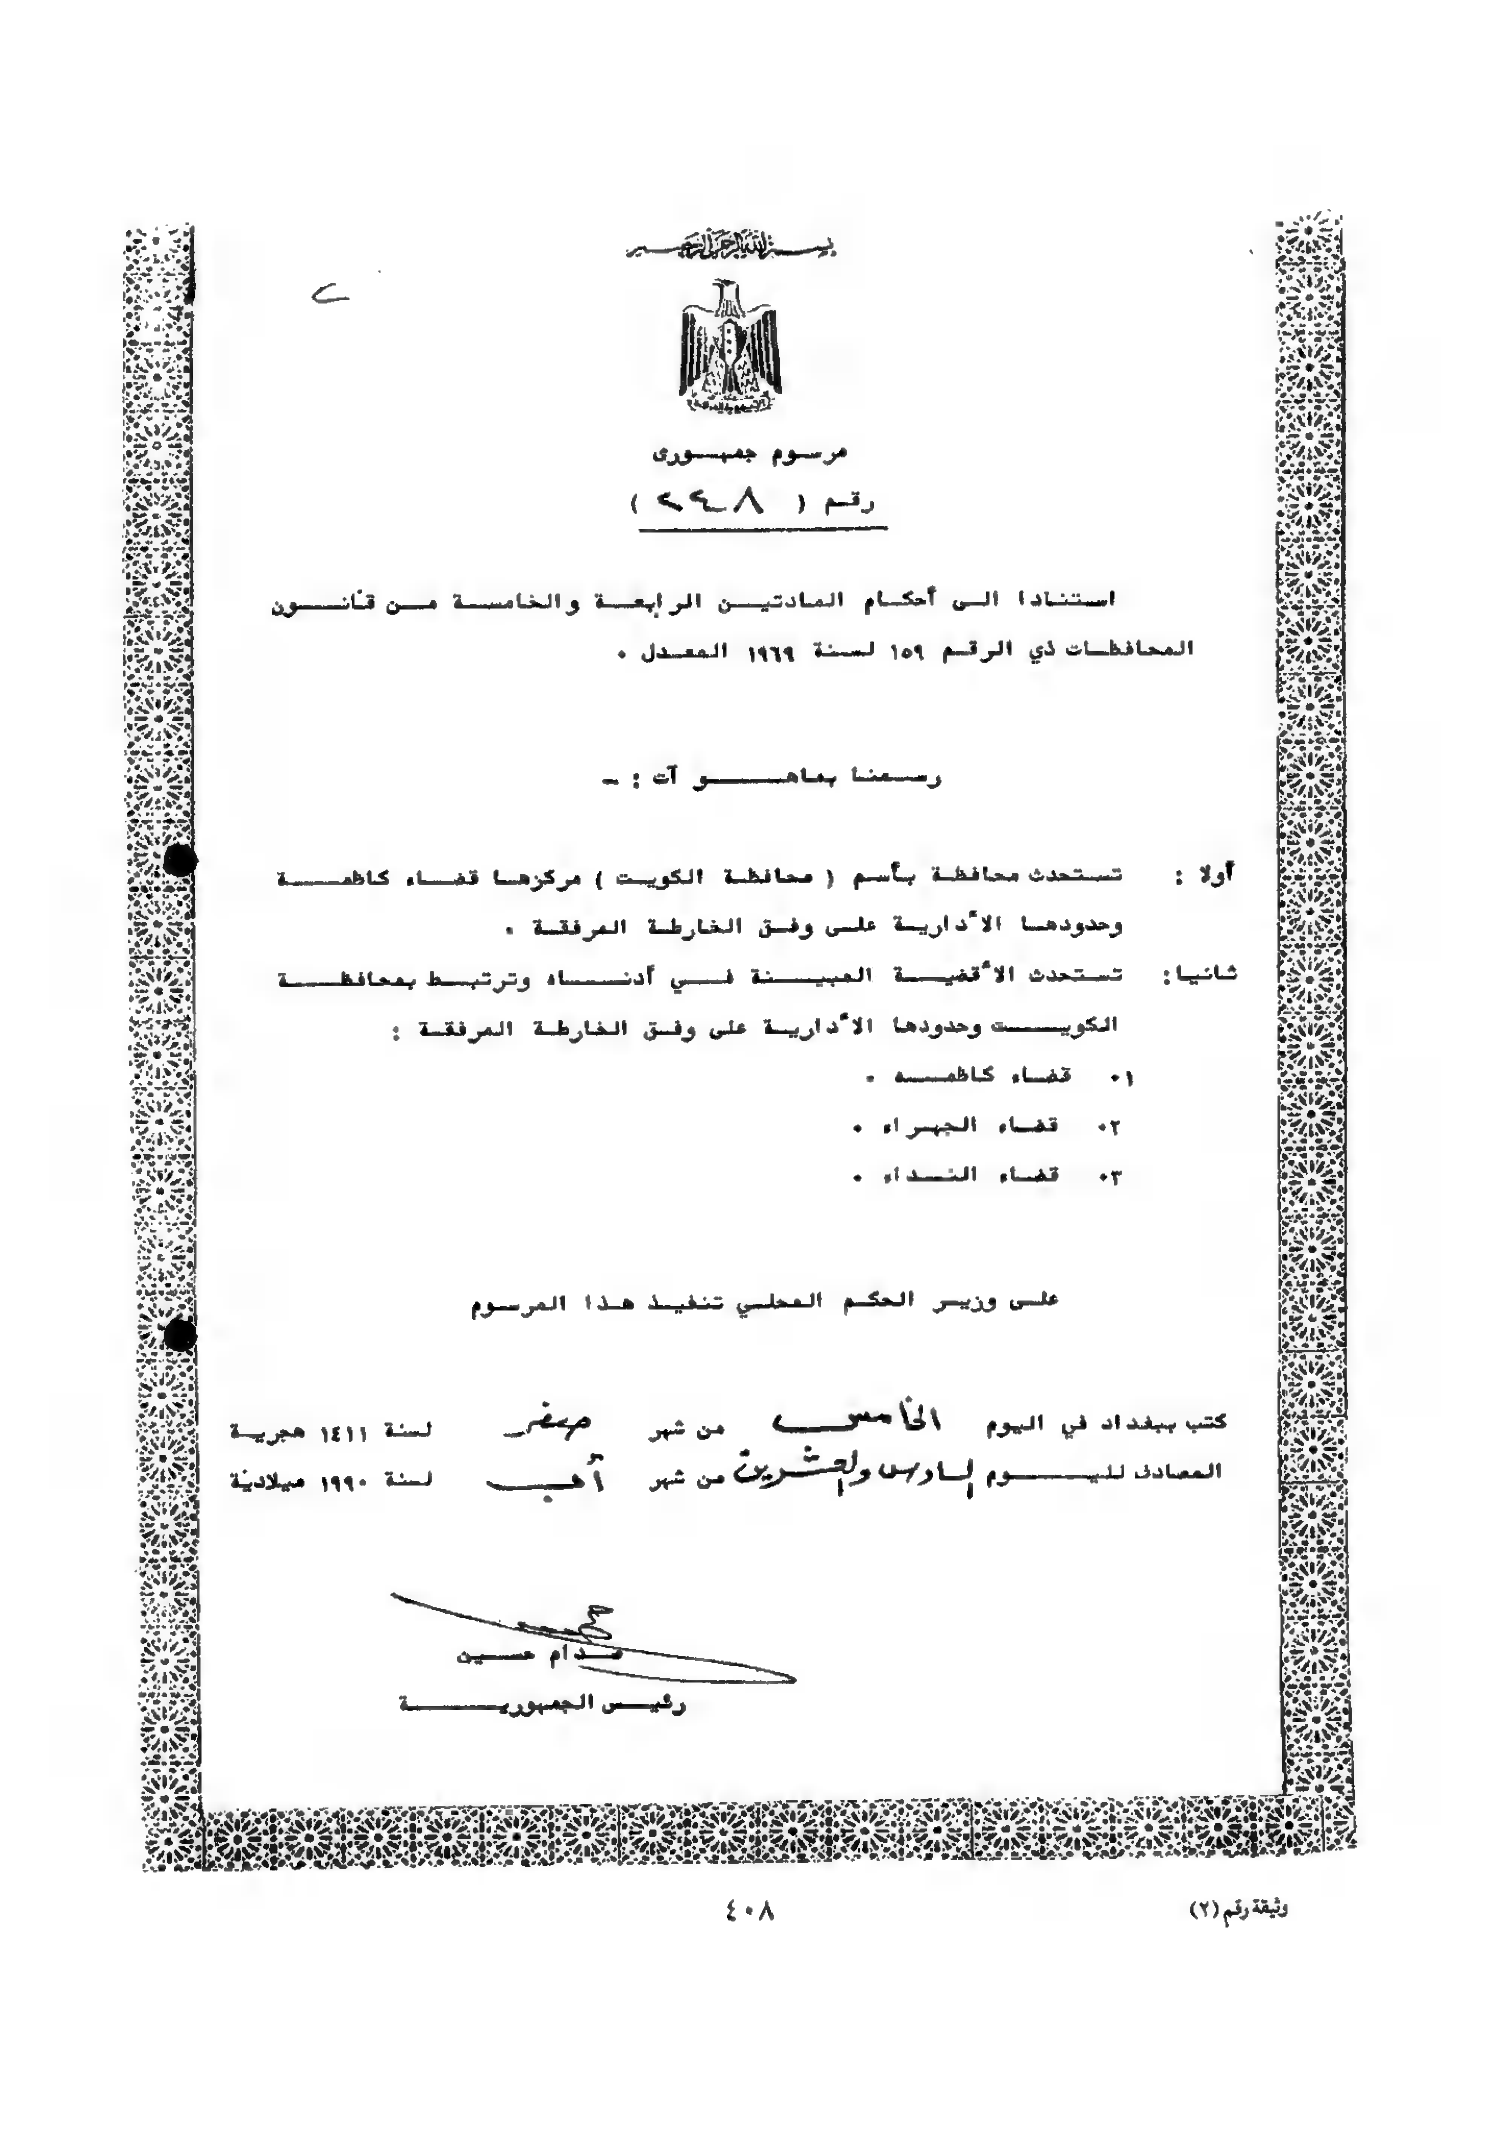 بسم الله الرحمن الرحيم
مرسوم جمهورى
رقم ( ٢٤٨ )
استنادا الى أحكام المادتيـن الرابعة والخامسة من قانون
المحافظات ذي الرقم ١٥٩ لسنة ١٩٦٩ المعدل ٠
رسمنا بماهو آت : -
أولا : تستحدث محافظة بأسم ( محافظة الكويت ) مركزها قضاء كاظمة
وحدودها الأدارية على وفق الخارطة المرفقة ٠
ثانيا: تستحدث الأقضية المبينة في أدناه وترتبط بمحافظة
الكويت وحدودها الأدارية على وفق الخارطة المرفقة :
٠١ قضاء كاظمه ٠
٠٢ قضاء الجهراء ٠
٠٣ قضاء النداء ٠
على وزير الحكم المحلي تنفيذ هذا المرسوم
كتب ببغداد في اليوم الخامس من شهر صفر لسنة ١٤١١ هجرية
المصادف لليوم السادس والعشرين من شهر آب لسنة ١٩٩٠ ميلادية
صدام حسين
رئيس الجمهورية
وثيقة رقم (٢)
٤٠٨